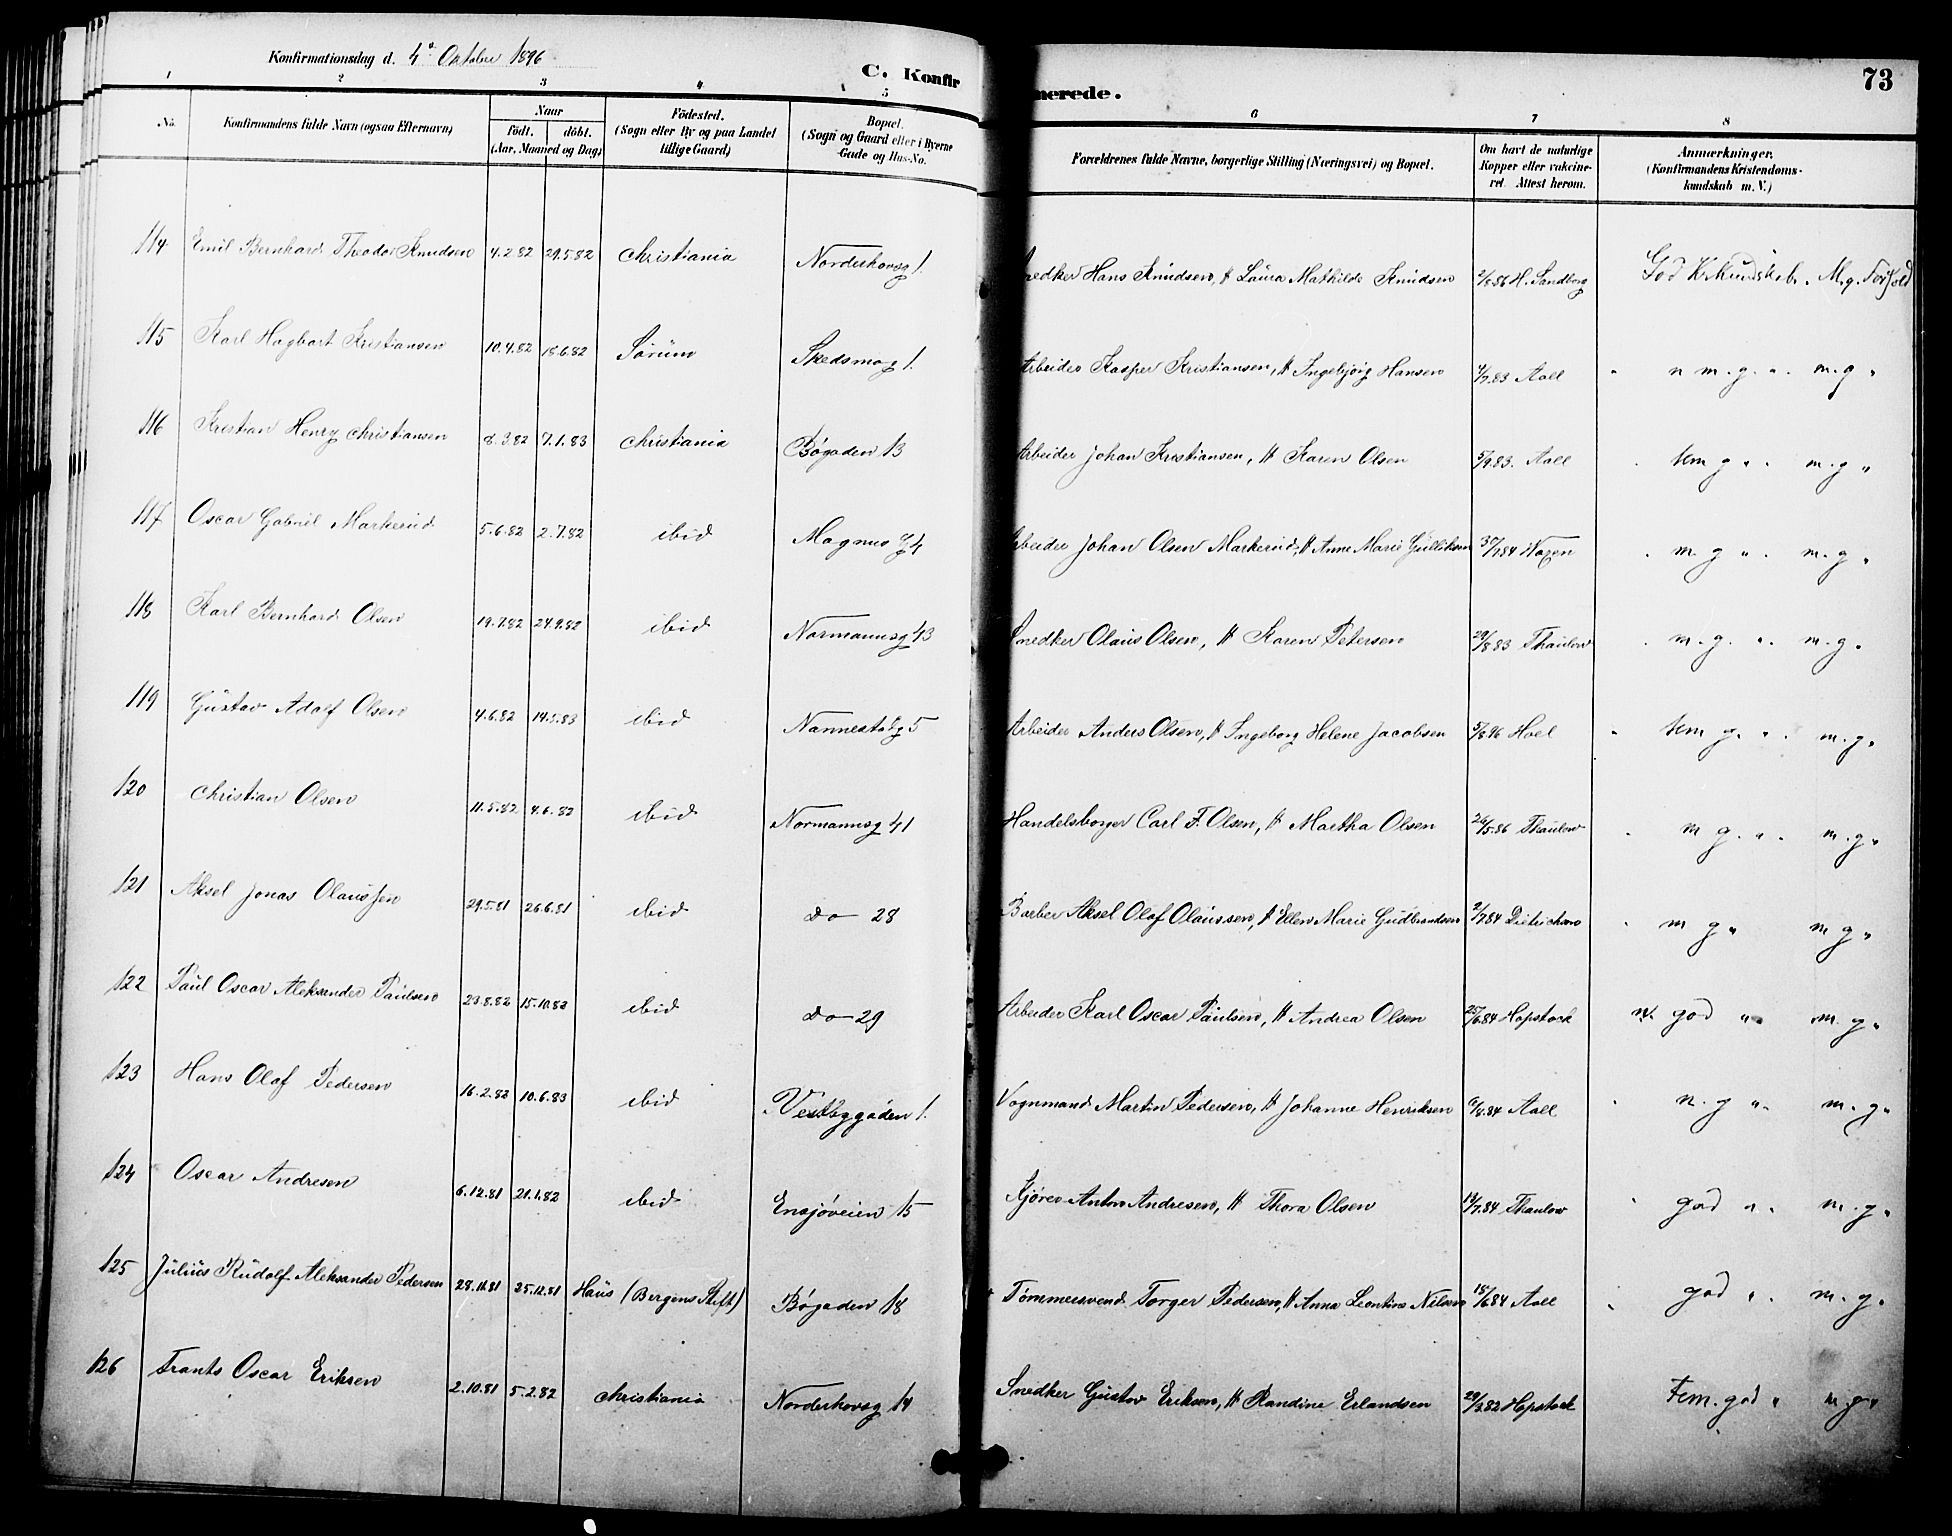 Konfirmationsdag d. 4de Oktober 1896
C. Konfirmerede.
73
1 2 3 4 5 6 7 8
No. Konfirmandens fulde Navn (ogsaa Efternavn) Naar født. døbt. (Aar, Maaned og Dag) Fødested. (Sogn eller By og paa Landet tillige Gaard) Bopæl. (Sogn og Gaard eller i Byerne Gade og Hus-No. Forældrenes fulde Navne, borgerlige Stilling (Næringsvei) og Bopæl. Om havt de naturlige Kopper eller vakcineret. Attest herom. Anmærkninger. (Konfirmandens Kristendomskundskab m. V.)
114 Emil Bernhard Theodor Knudsen 4.2.82 29.5.82 Christiania Norderhovsg 1. Snedker Hans Knudsen, H Laura Mathilde Knudsen 2/8.86 H. Sandberg God Kr.kundskab. M.g. Forhold
115 Karl Hagbart Kristiansen 10.4.82 18.6.82 Sørum Skedsmog 1. Arbeider Kasper Kristiansen, H Ingebjørg Hansen 4/7.83 Aall " n m.g. ". m.g "
116 Kristian Henry Christiansen 8.3.82 7.1.83 Christiania Bøgaden 13 Arbeider Johan Kristiansen, H Karen Olsen 5/9.83. Aall . tem g " . m.g "
117 Oscar Gabriel Markerud 5.6.82 2.7.82 ibid Magnus g 4 Arbeider Johan Olsen Markerud, H Anne Marie Gulliksen 30/7.84 . m.g " . m.g "
118 Karl Bernhard Olsen 19.7.82 24.9.82 ibid Normannsg 43 Snedker Olaus Olsen, H Karen Petersen 29/8.83 Thaulow . m.g. ". m.g.
119 Gustav Adolf Olsen 4.6.82 14.5.83 ibid Nannestadg 5 Arbeider Anders Olsen, H Ingeborg Helene Jacobsen 5/8.96 Hoel " tem g. ". m.g "
120 Christian Olsen 11.5.82 4.6.82 ibid Normannsg 41 Handelsborger Carl F. Olsen, H Martha Olsen 26/5.86 Thaulow . m g. ". m.g "
121 Aksel Jonas Olaussen 29.5.81 26.6.81 ibid do 28 Barber Aksel Olaf Olaussen, H Ellen Marie Gudbrandsen 2/7.84 Dietrichson . m g " m g "
122 Paul Oscar Aleksander Paulsen 23.8.82 15.10.82 ibid do 29 Arbeider Karl Oscar Paulsen, H Andrea Olsen 25/6.84 Hopstock god " m.g "
123 Hans Olaf Pedersen 16.2.82 10.6.83 ibid Vestbygaden 1. Vognmand Martin Pedersen, H Johanne Henriksen 6/8.84 Aall " n.g ". m.g "
124 Oscar Andresen 6.12.81 21.1.82 ibid Ensjøveien 15 Kjører Anton Andresen, H Thora Olsen 14/7.84 Thaulow " god ". m.g "
125 Julius Rudolf Aleksander Pedersen 28.11.81 25.12.81 Haus (Bergens Stift) Bøgaden 18 Tømmersvend Torger Pedersen, H Anna Leontine Nilsen 18/6.84 Aall . god " . m.g "
126 Frants Oscar Eriksen 2.10.81 5.2.82 Christiania Norderhovsg 14 Snedker Gustav Eriksen, H Randine Erlandsen 29/3.82 Hopstock Tem. god " m g "